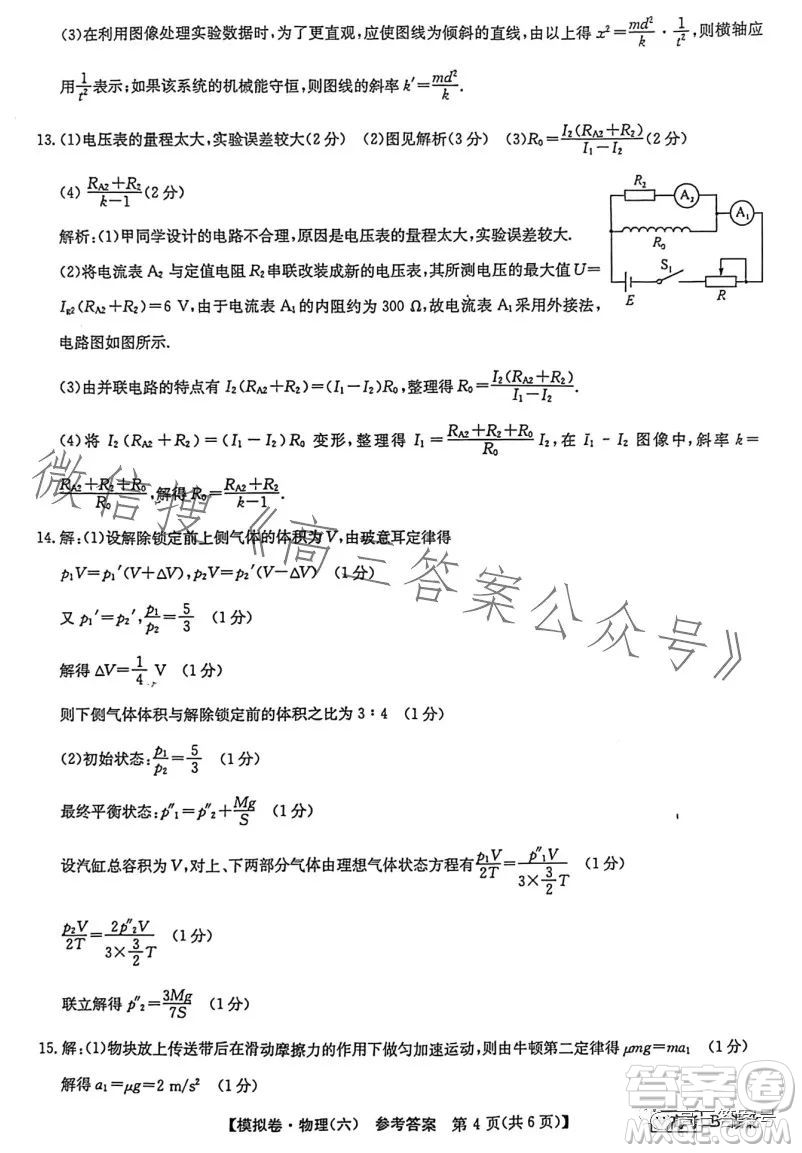 (3)在利用图像处理实验数据时,为了更直观,应使图线为倾斜的直线,由以上得 x²=md²/k · 1/t²,则横轴应
用1/t²表示;如果该系统的机械能守恒,则图线的斜率 k′=md²/k.
13. (1)电压表的量程太大,实验误差较大(2分) (2)图见解析(3分) (3)R₀=I₂(R_A2+R₂)/(I₁-I₂)(2分)
(4) (R_A2+R₂)/(k-1)(2分)
解析:(1)甲同学设计的电路不合理,原因是电压表的量程太大,实验误差较大.
(2)将电流表 A₂ 与定值电阻 R₂串联改装成新的电压表,其所测电压的最大值 U=
I_g2(R_A2+R₂)=6 V,由于电流表 A₁的内阻约为 300 Ω,故电流表 A₁采用外接法,
电路图如图所示.
R₂
A₂
A₁
R₀
S₁
E
R
(3)由并联电路的特点有 I₂(R_A2+R₂)=(I₁-I₂)R₀,整理得 R₀=I₂(R_A2+R₂)/(I₁-I₂).
(4)将 I₂(R_A2+R₂)=(I₁-I₂)R₀ 变形,整理得 I₁=(R_A2+R₂+R₀)/R₀ I₂,在 I₁-I₂ 图像中,斜率 k=
(R_A2+R₂+R₀)/R₀,解得 R₀=(R_A2+R₂)/(k-1).
14. 解:(1)设解除锁定前上侧气体的体积为V,由玻意耳定律得
p₁V=p₁′(V+ΔV),p₂V=p₂′(V-ΔV) (1分)
又 p₁′=p₂′,p₁/p₂=5/3 (1分)
解得ΔV=1/4 V (1分)
则下侧气体体积与解除锁定前的体积之比为 3∶4 (1分)
(2)初始状态:p₁/p₂=5/3 (1分)
最终平衡状态:p″₁=p″₂+Mg/S (1分)
设汽缸总容积为V,对上、下两部分气体由理想气体状态方程有p₁V/2T=p″₁V/(3×3/2 T) (1分)
p₂V/2T=2p″₂V/(3×3/2 T) (1分)
联立解得 p″₂=3Mg/7S (1分)
15. 解:(1)物块放上传送带后在滑动摩擦力的作用下做匀加速运动,则由牛顿第二定律得 μmg=ma₁ (1分)
解得 a₁=μg=2 m/s² (1分)
【模拟卷·物理(六) 参考答案 第4页(共6页)】
微信搜《高三答案公众号》
答案圈